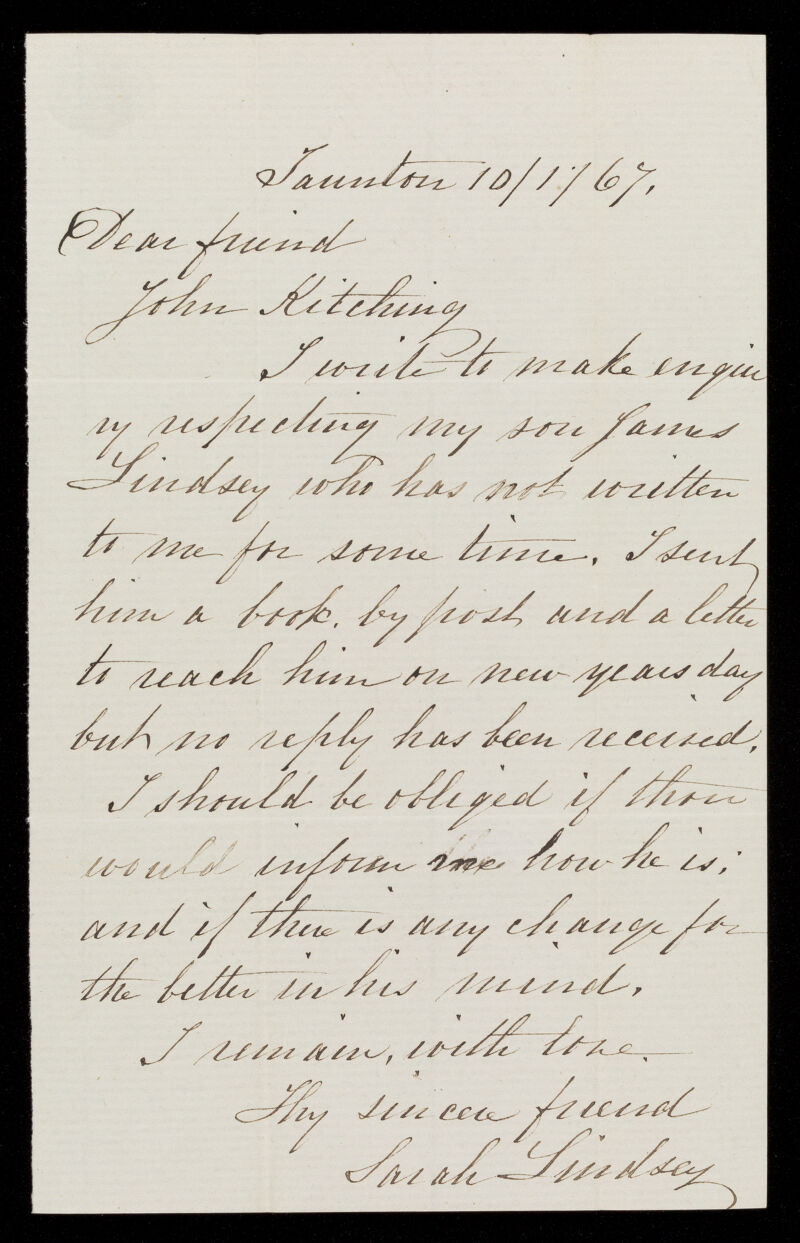 Taunton 10/1/67.
Dear friend
John Kitching
I write to make enqui
ry respecting my son James
Lindsey who has not written
to me for some time. I sent
him a book. by post and a letter
to reach him on new years day
but no reply has been received.
I should be obliged if thou
would inform me how he is;
and if there is any change for
the better in his mind.
I remain, with love.
Thy sincere friend
Sarah Lindsey